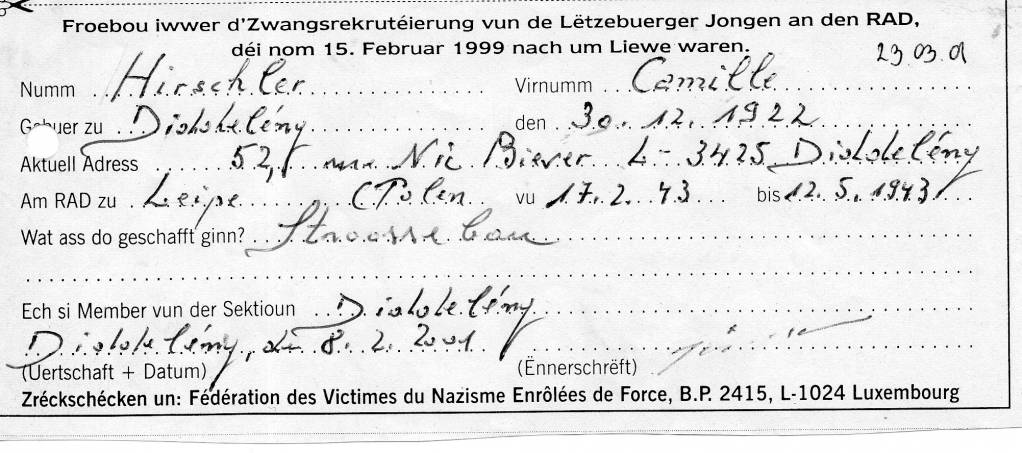 Froebou iwwer d'Zwangsrekrutéierung vun de Lëtzebuerger Jongen an den RAD,
déi nom 15. Februar 1999 nach um Liewe waren.
23.03.01
Numm Hirschler Virnumm Camille
Gebuer zu Diddeléng den 30.12.1922
Aktuell Adress 52, rue Nic Biever L-3425 Diddeléng
Am RAD zu Leipe (Polen vu 17.2.43 bis 12.5.1943
Wat ass do geschafft ginn? Stroossebau
Ech si Member vun der Sektioun Diddeléng
Diddeléng, de 8.2.2001
(Uertschaft + Datum) (Ënnerschrëft)
Zréckschécken un: Fédération des Victimes du Nazisme Enrôlées de Force, B.P. 2415, L-1024 Luxembourg